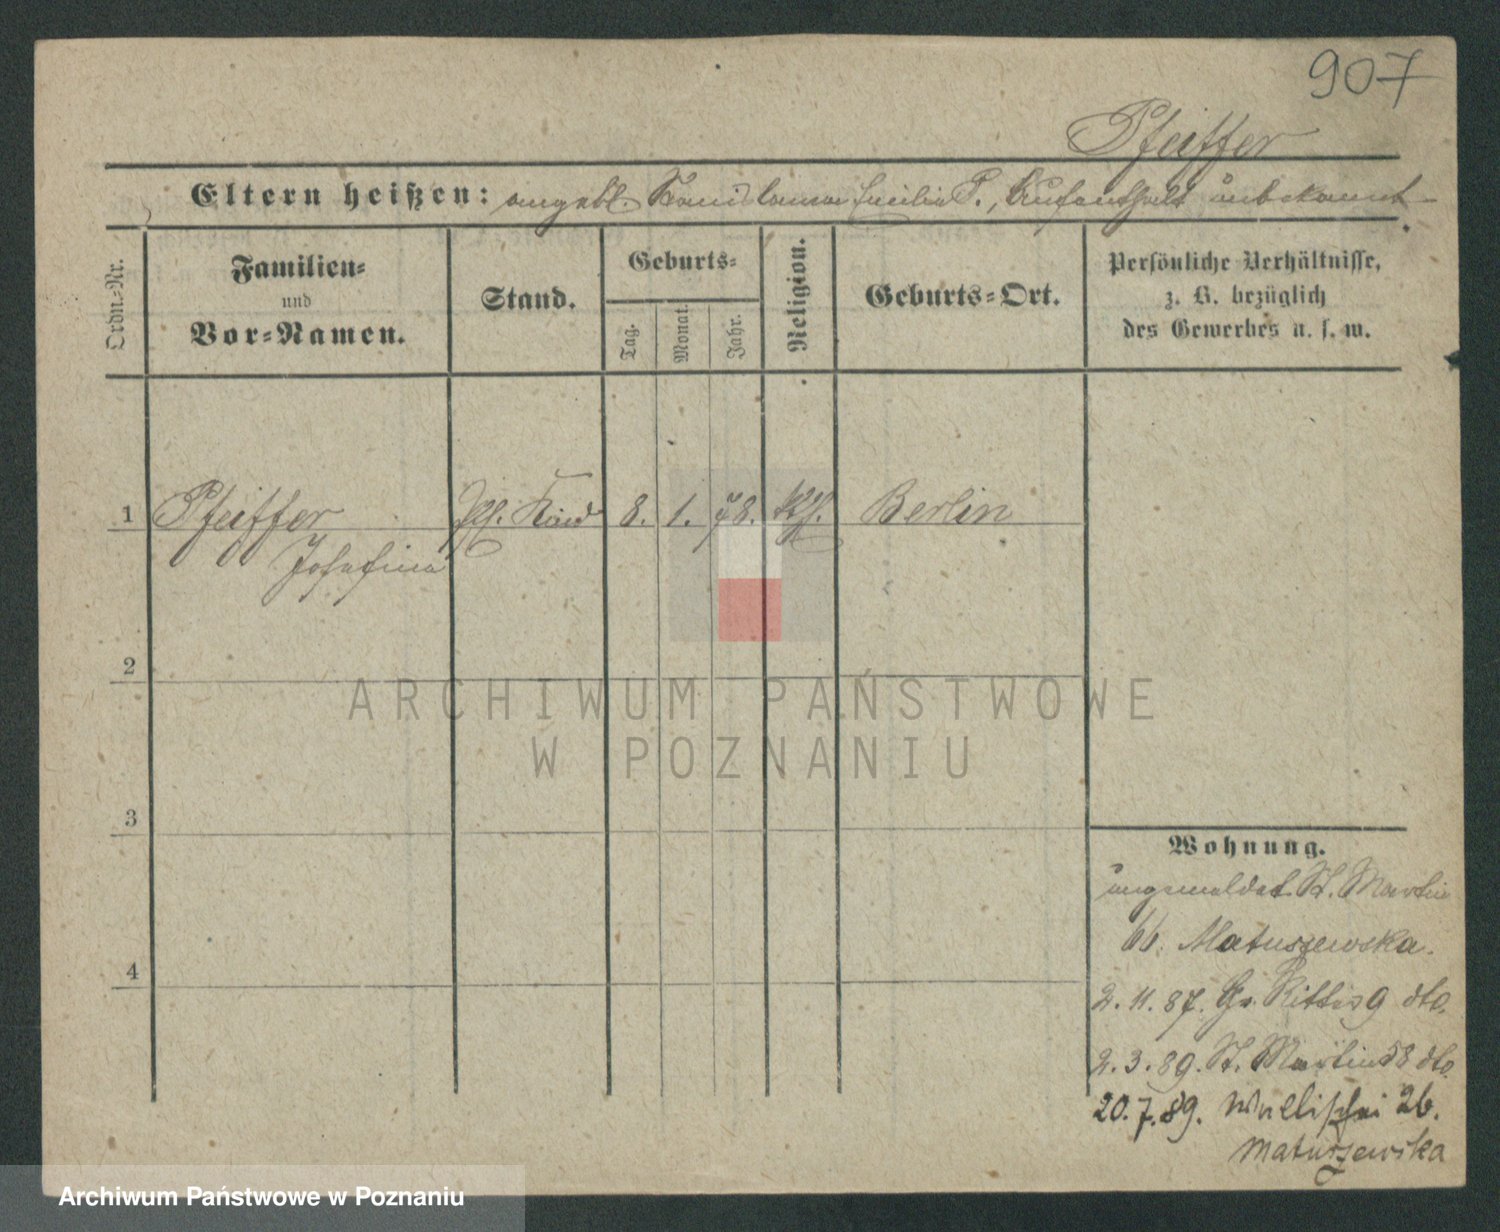 907
Pfeiffer
Eltern heißen: angebl. Stanislawa Cecilie P., Aufenthalt unbekannt
Ordn.-Nr.
Familien- und Vor-Namen.
Stand.
Geburts-
Tag.
Monat.
Jahr.
Religion.
Geburts-Ort.
Persönliche Verhältnisse,
z. B. bezüglich
des Gewerbes u. s. w.
1 Pfeiffer Kind 8. 1. 78. kth. Berlin
Josefina
2
ARCHIWUM PAŃSTWOWE
W POZNANIU
3
4
Wohnung.
angemeldet St. Martin
66. Matuszewska.
2.11.87. Gr. Ritter 9 dto.
2.3.89. St. Martin 58 dto.
20.7.89. Wallischei 26.
Matuszewska
Archiwum Państwowe w Poznaniu